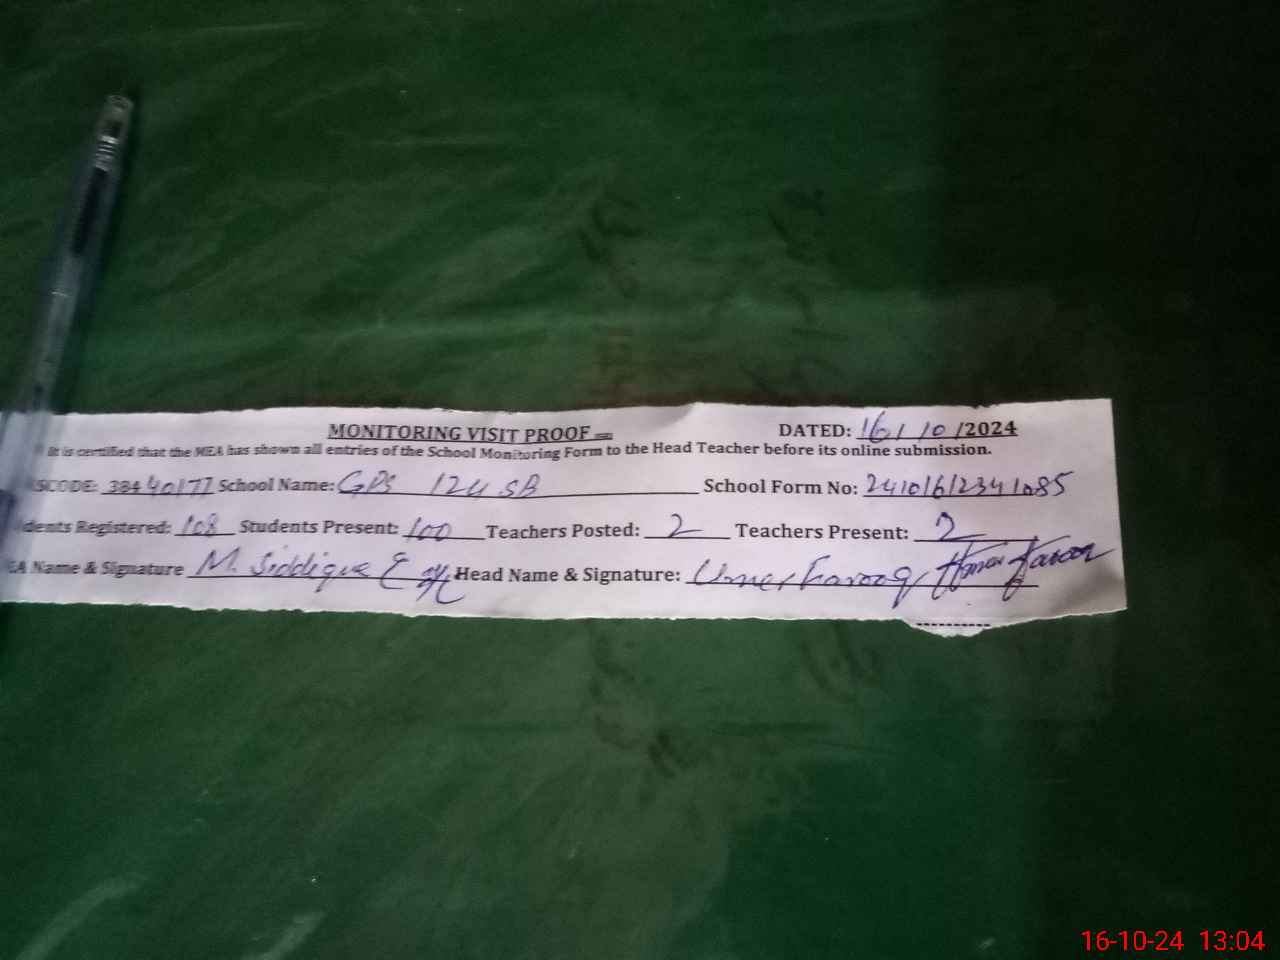 MONITORING VISIT PROOF DATED: 16/10/2024
It is certified that the MEA has shown all entries of the School Monitoring Form to the Head Teacher before its online submission.
SCODE: 38440177 School Name: GPS 124 SB School Form No: 24101612341085
dents Registered: 108 Students Present: 100 Teachers Posted: 2 Teachers Present: 2
EA Name & Signature M. Siddique Head Name & Signature: Umer Farooq Umer Farooq
16-10-24 13:04